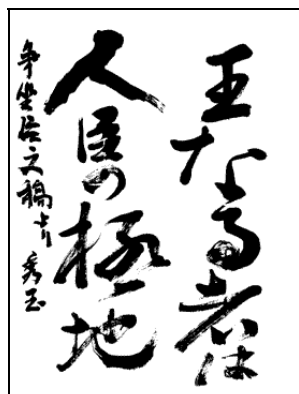 王なる者は
人臣の極地
争坐位文稿より 秀玉